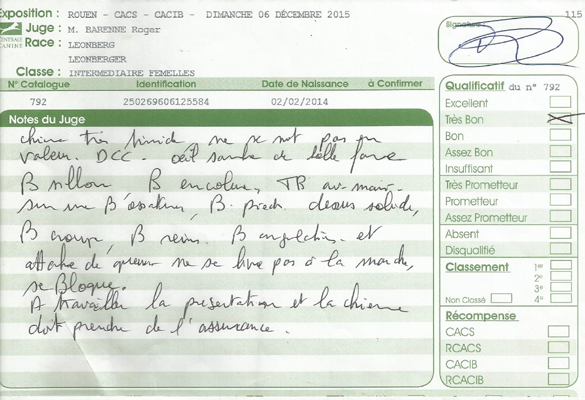 Exposition : ROUEN - CACS - CACIB - DIMANCHE 06 DÉCEMBRE 2015 115
Juge : M. BARENNE Roger
Race : LEONBERG
LEONBERGER
Classe : INTERMEDIAIRE FEMELLES
CENTRALE CANINE
Signature
N° Catalogue Identification Date de Naissance à Confirmer
792 250269606125584 02/02/2014
Notes du Juge
chienne très timide ne se met pas en
valeur. DCC. oeil sombre de belle forme
B sillon, B encolure, TB av-main
sur une B ossature, B. pieds, dessus solide,
B croupe, B reins. B angulations et
attache de queue ne se livre pas à la marche,
se Bloque.
A travailler la présentation et la chienne
doit prendre de l'assurance.
Qualificatif du n° 792
Excellent
Très Bon
Bon
Assez Bon
Insuffisant
Très Prometteur
Prometteur
Assez Prometteur
Absent
Disqualifié
Classement 1er
2e
3e
Non Classé 4e
Récompense
CACS
RCACS
CACIB
RCACIB